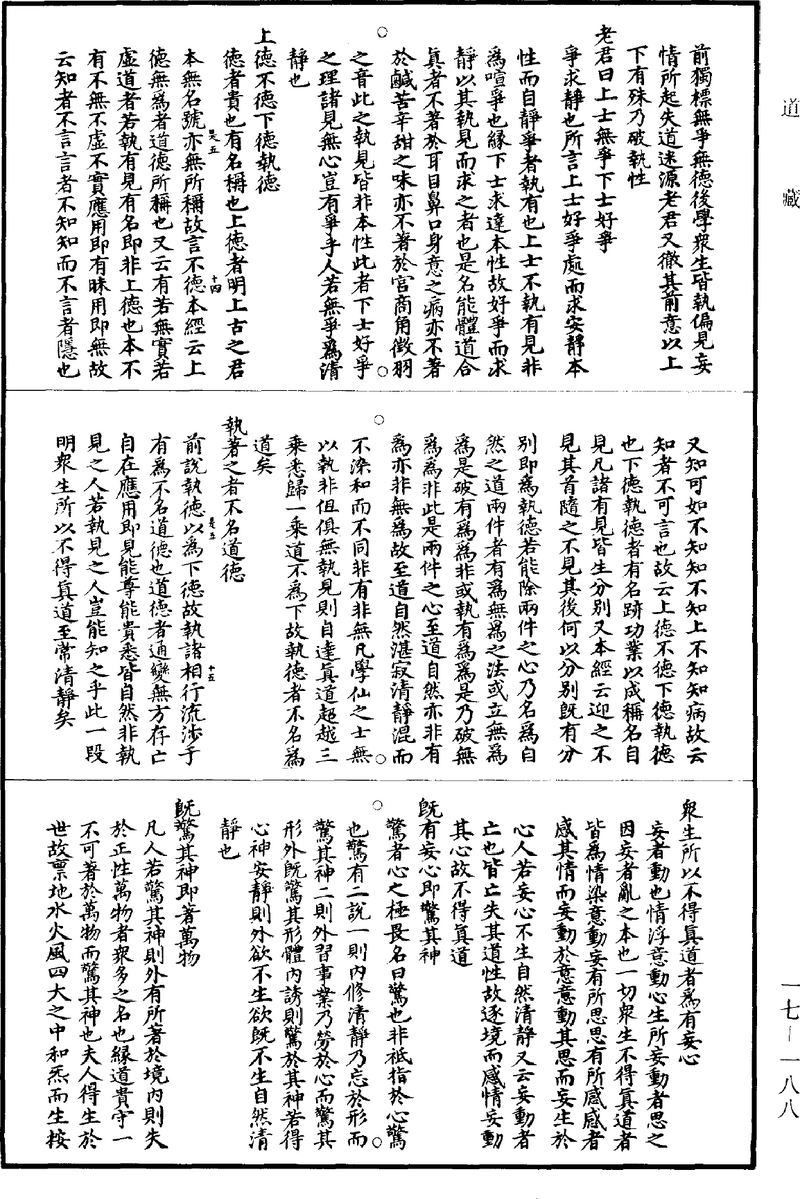 道藏
前獨標無爭無德後學衆生皆執偏見妄
情所起失道迷源老君又徵其前意以上
下有殊乃破執性
老君曰上士無爭下士好爭
爭求靜也所言上士好爭處而求安靜本
性而自靜爭者執有也上士不執有見非
爲喧爭也緣下士求達本性故好爭而求
靜以其執見而求之者也是名能體道合
眞者不著於耳目鼻口身意之病亦不著
於鹹苦辛甜之味亦不著於宮商角徵羽
之音此之執見皆非本性此者下士好爭
之理諸見無心豈有爭乎人若無爭爲清
靜也
上德不德下德執德
德者貴也有名稱也上德者明上古之君
是五　十四
本無名號亦無所稱故言不德本經云上
德無爲者道德所稱也又云有若無實若
虛道者若執有見有名即非上德也本不
有不無不虛不實應用即有昧用即無故
云知者不言言者不知知而不言者隱也
又知可如不知知不知上不知知病故云
知者不可言也故云上德不德下德執德
也下德執德者有名跡功業以成稱名自
見凡諸有見皆生分別又本經云迎之不
見其首隨之不見其後何以分別既有分
別即爲執德若能除兩件之心乃名爲自
然之道兩件者有爲無爲之法或立無爲
爲是破有爲爲非或執有爲爲是乃破無
爲爲非此是兩件之心至道自然亦非有
爲亦非無爲故至道自然湛寂清靜混而
不染和而不同非有非無凡學仙之士無
以執非但俱無執見則自達眞道超越三
乘悉歸一乘道不爲下故執德者不名爲
道矣
執著之者不名道德
前說執德以爲下德故執諸相行流涉于
是五　十五
有爲不名道德也道德者通變無方存亡
自在應用即見能尊能貴悉皆自然非執
見之人若執見之人豈能知之乎此一段
明衆生所以不得眞道至常清靜矣
衆生所以不得眞道者爲有妄心
妄者動也情浮意動心生所妄動者思之
因妄者亂之本也一切衆生不得眞道者
皆爲情染意動妄有所思思有所感感者
感其情而妄動於意意動其思而妄生於
心人若妄心不生自然清靜又云妄動者
亡也皆亡失其道性故逐境而感情妄動
其心故不得眞道
既有妄心即驚其神
驚者心之極畏名曰驚也非祇指於心驚
也驚有二說一則內修清靜乃忘於形而
驚其神二則外習事業乃勞於心而驚其
形外既驚其形體內誘則驚於其神若得
心神安靜則外欲不生欲既不生自然清
靜也
既驚其神即著萬物
凡人若驚其神則外有所著於境內則失
於正性萬物者衆多之名也緣道貴守一
不可著於萬物而驚其神也夫人得生於
世故稟地水火風四大之中和炁而生桉
一七—一八八